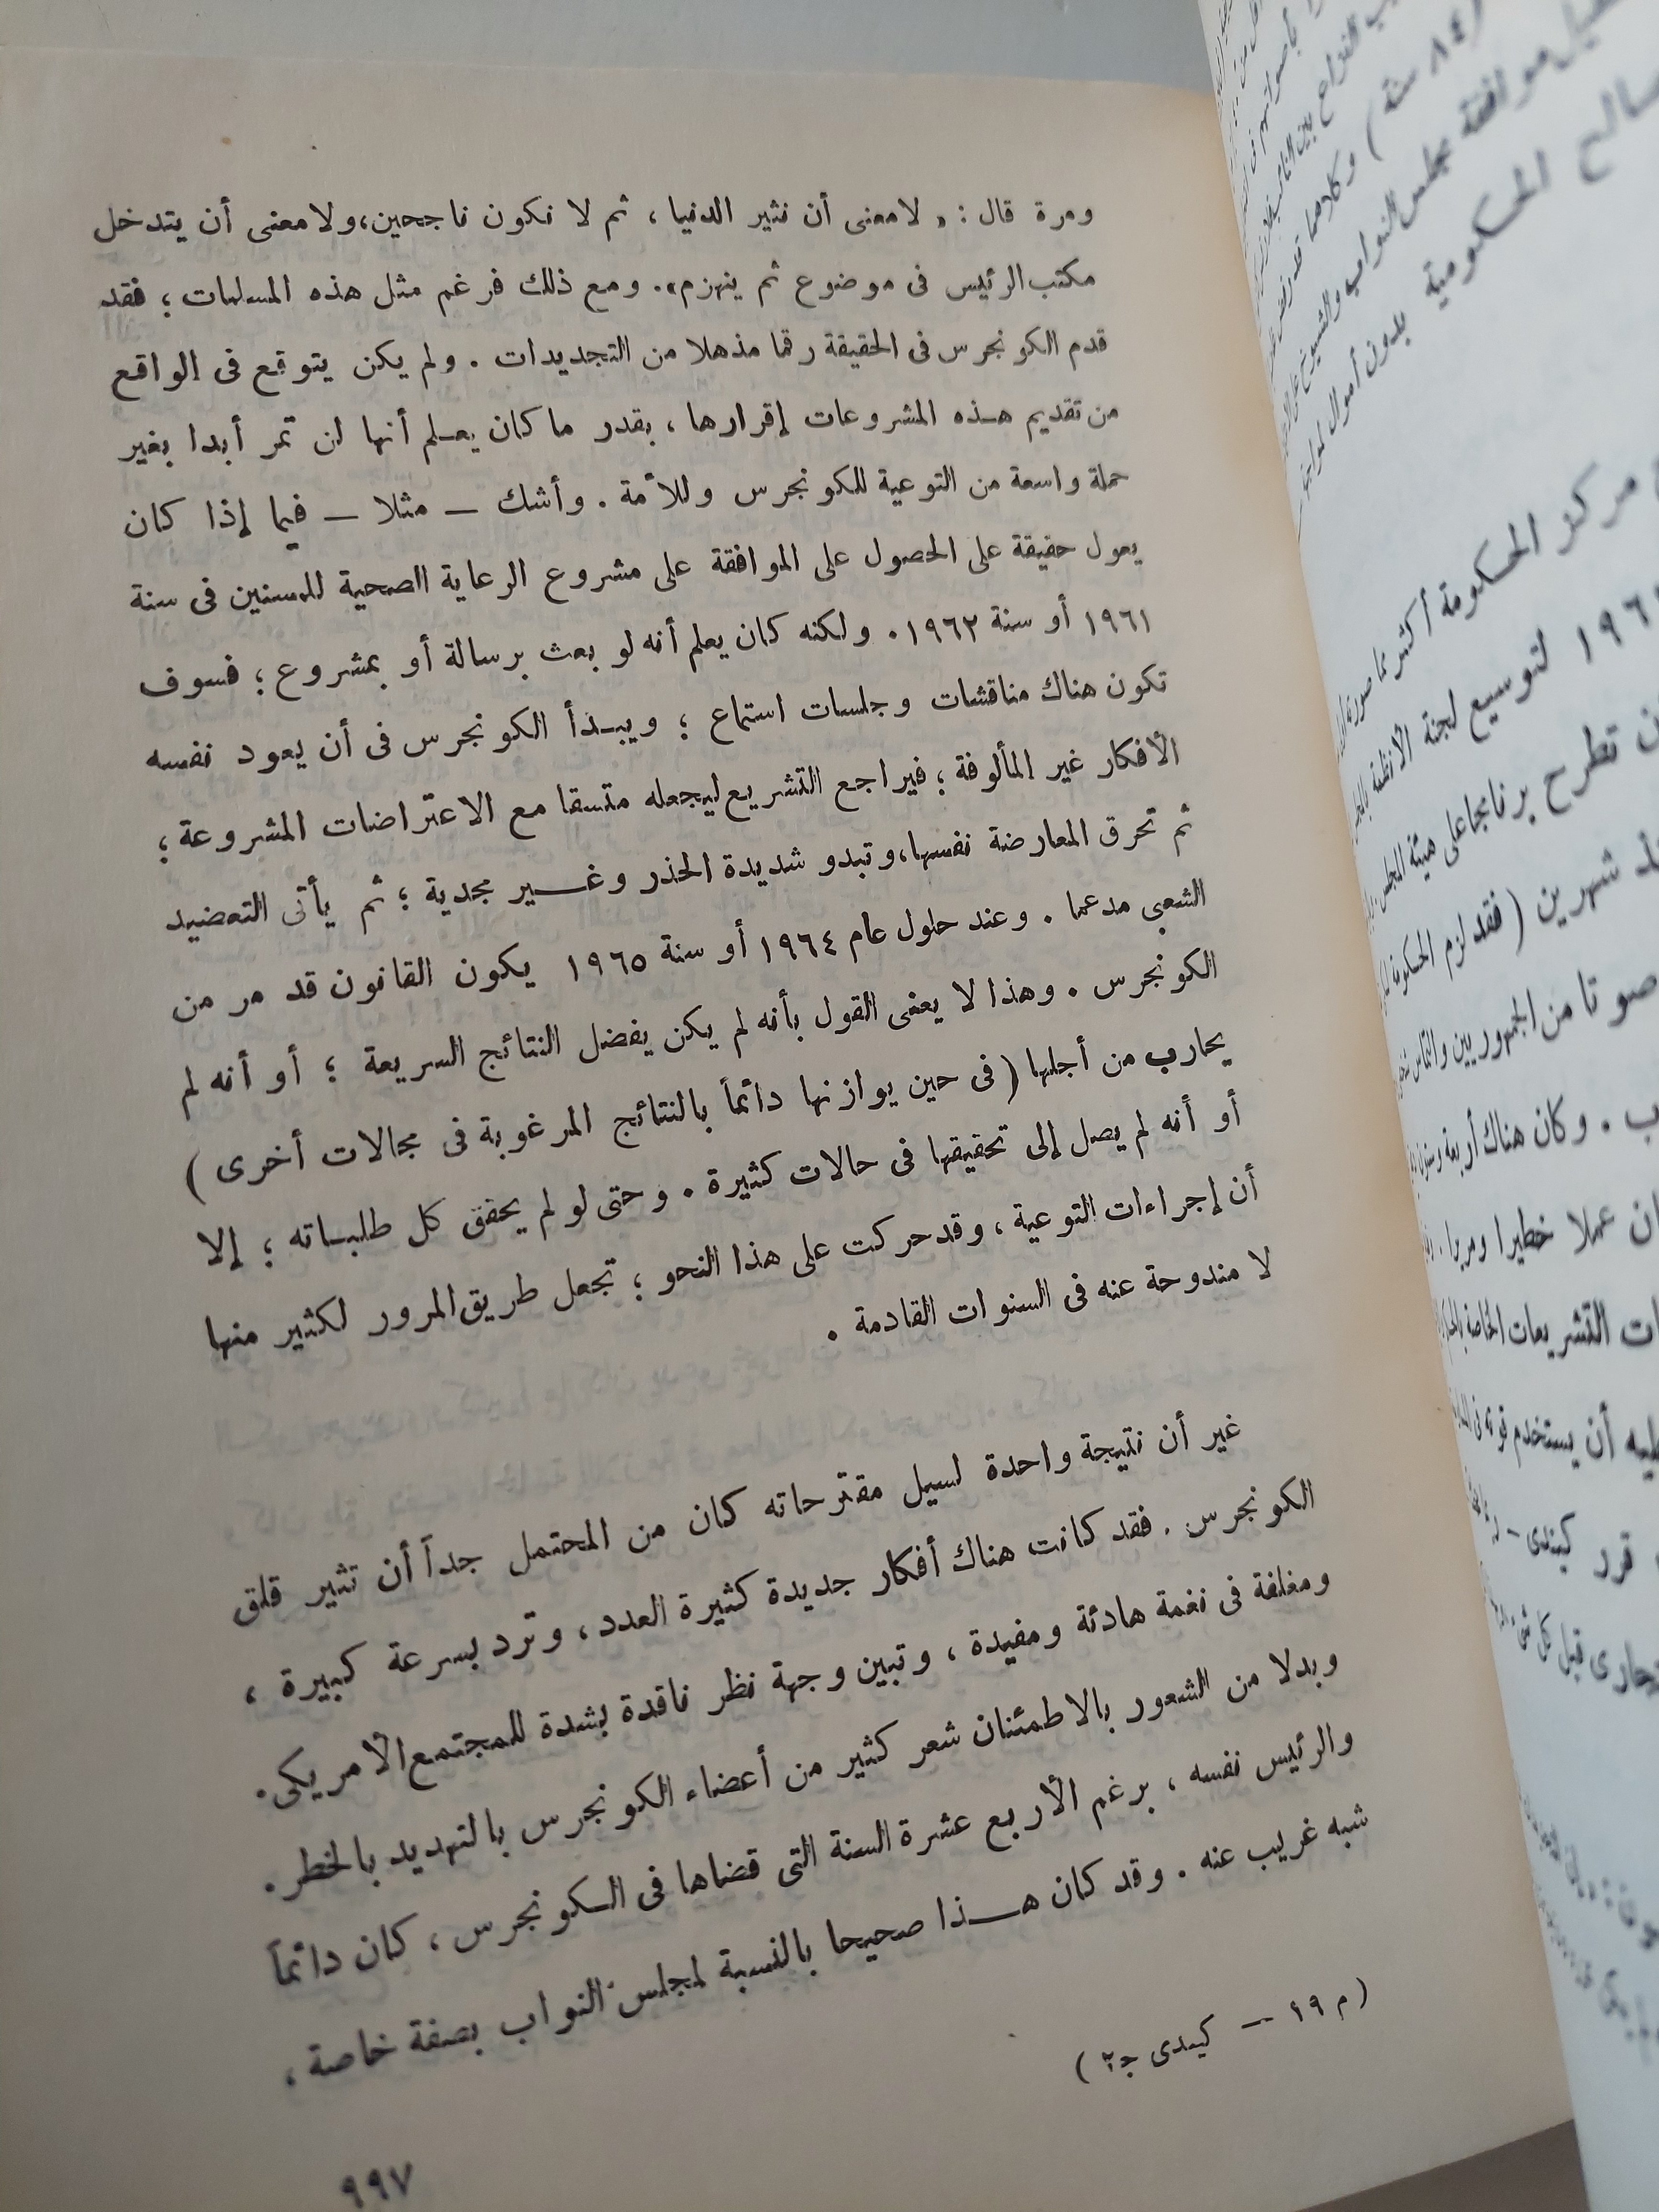 ومرة قال : « لا معنى أن نثير الدنيا ، ثم لا نكون ناجحين، ولا معنى أن يتدخل
مكتب الرئيس فى موضوع ثم ينهزم». ومع ذلك فرغم مثل هذه المسلمات ؛ فقد
قدم الكونجرس فى الحقيقة رقما مذهلا من التجديدات . ولم يكن يتوقع فى الواقع
من تقديم هذه المشروعات إقرارها ، بقدر ما كان يعلم أنها لن تمر أبدا بغير
حملة واسعة من التوعية للكونجرس وللأمة . وأشك — مثلا — فيما إذا كان
يعول حقيقة على الحصول على الموافقة على مشروع الرعاية الصحية للمسنين فى سنة
١٩٦١ أو سنة ١٩٦٢ . ولكنه كان يعلم أنه لو بعث برسالة أو بمشروع ؛ فسوف
تكون هناك مناقشات وجلسات استماع ؛ ويبدأ الكونجرس فى أن يعود نفسه
الأفكار غير المألوفة ؛ فيراجع التشريع ليجعله متسقا مع الاعتراضات المشروعة ؛
ثم تحرق المعارضة نفسها، وتبدو شديدة الحذر وغير مجدية ؛ ثم يأتى التعضيد
الشعبى مدعما . وعند حلول عام ١٩٦٤ أو سنة ١٩٦٥ يكون القانون قد مر من
الكونجرس . وهذا لا يعنى القول بأنه لم يكن يفضل النتائج السريعة ؛ أو أنه لم
يحارب من أجلها ( فى حين يوازنها دائماً بالنتائج المرغوبة فى مجالات أخرى )
أو أنه لم يصل إلى تحقيقها فى حالات كثيرة . وحتى لو لم يحقق كل طلباته ؛ إلا
أن إجراءات التوعية ، وقد حركت على هذا النحو ؛ تجعل طريق المرور لكثير منها
لا مندوحة عنه فى السنوات القادمة .
غير أن نتيجة واحدة لسيل مقترحاته كان من المحتمل جداً أن تثير قلق
الكونجرس . فقد كانت هناك أفكار جديدة كثيرة العدد ، وترد بسرعة كبيرة ،
ومغلفة فى نغمة هادئة ومفيدة ، وتبين وجهة نظر ناقدة بشدة للمجتمع الأمريكى .
وبدلا من الشعور بالاطمئنان شعر كثير من أعضاء الكونجرس بالتهديد بالخطر .
والرئيس نفسه ، برغم الأربع عشرة السنة التى قضاها فى الكونجرس ، كان دائماً
شبه غريب عنه . وقد كان هذا صحيحا بالنسبة لمجلس النواب بصفة خاصة ،
( م ١٩ — كيندى ج٢ )
٩٩٧
( ٨٤ سنة ) وكلاهما
موافقة مجلس النواب والشيوخ
الحكومية بدون أموال
مركز الحكومة أكثر مما
لتوسيع لجنة الأنظمة
تطرح برنامجا على هيئة المجلس
شهرين ( فقد لزم الحكومة
صوتا من الجمهوريين
وكان هناك أربعة
عملا خطيرا
التشريعات الخاصة
أن يستخدم قوته
قرر كيندى —
قبل كل شىء